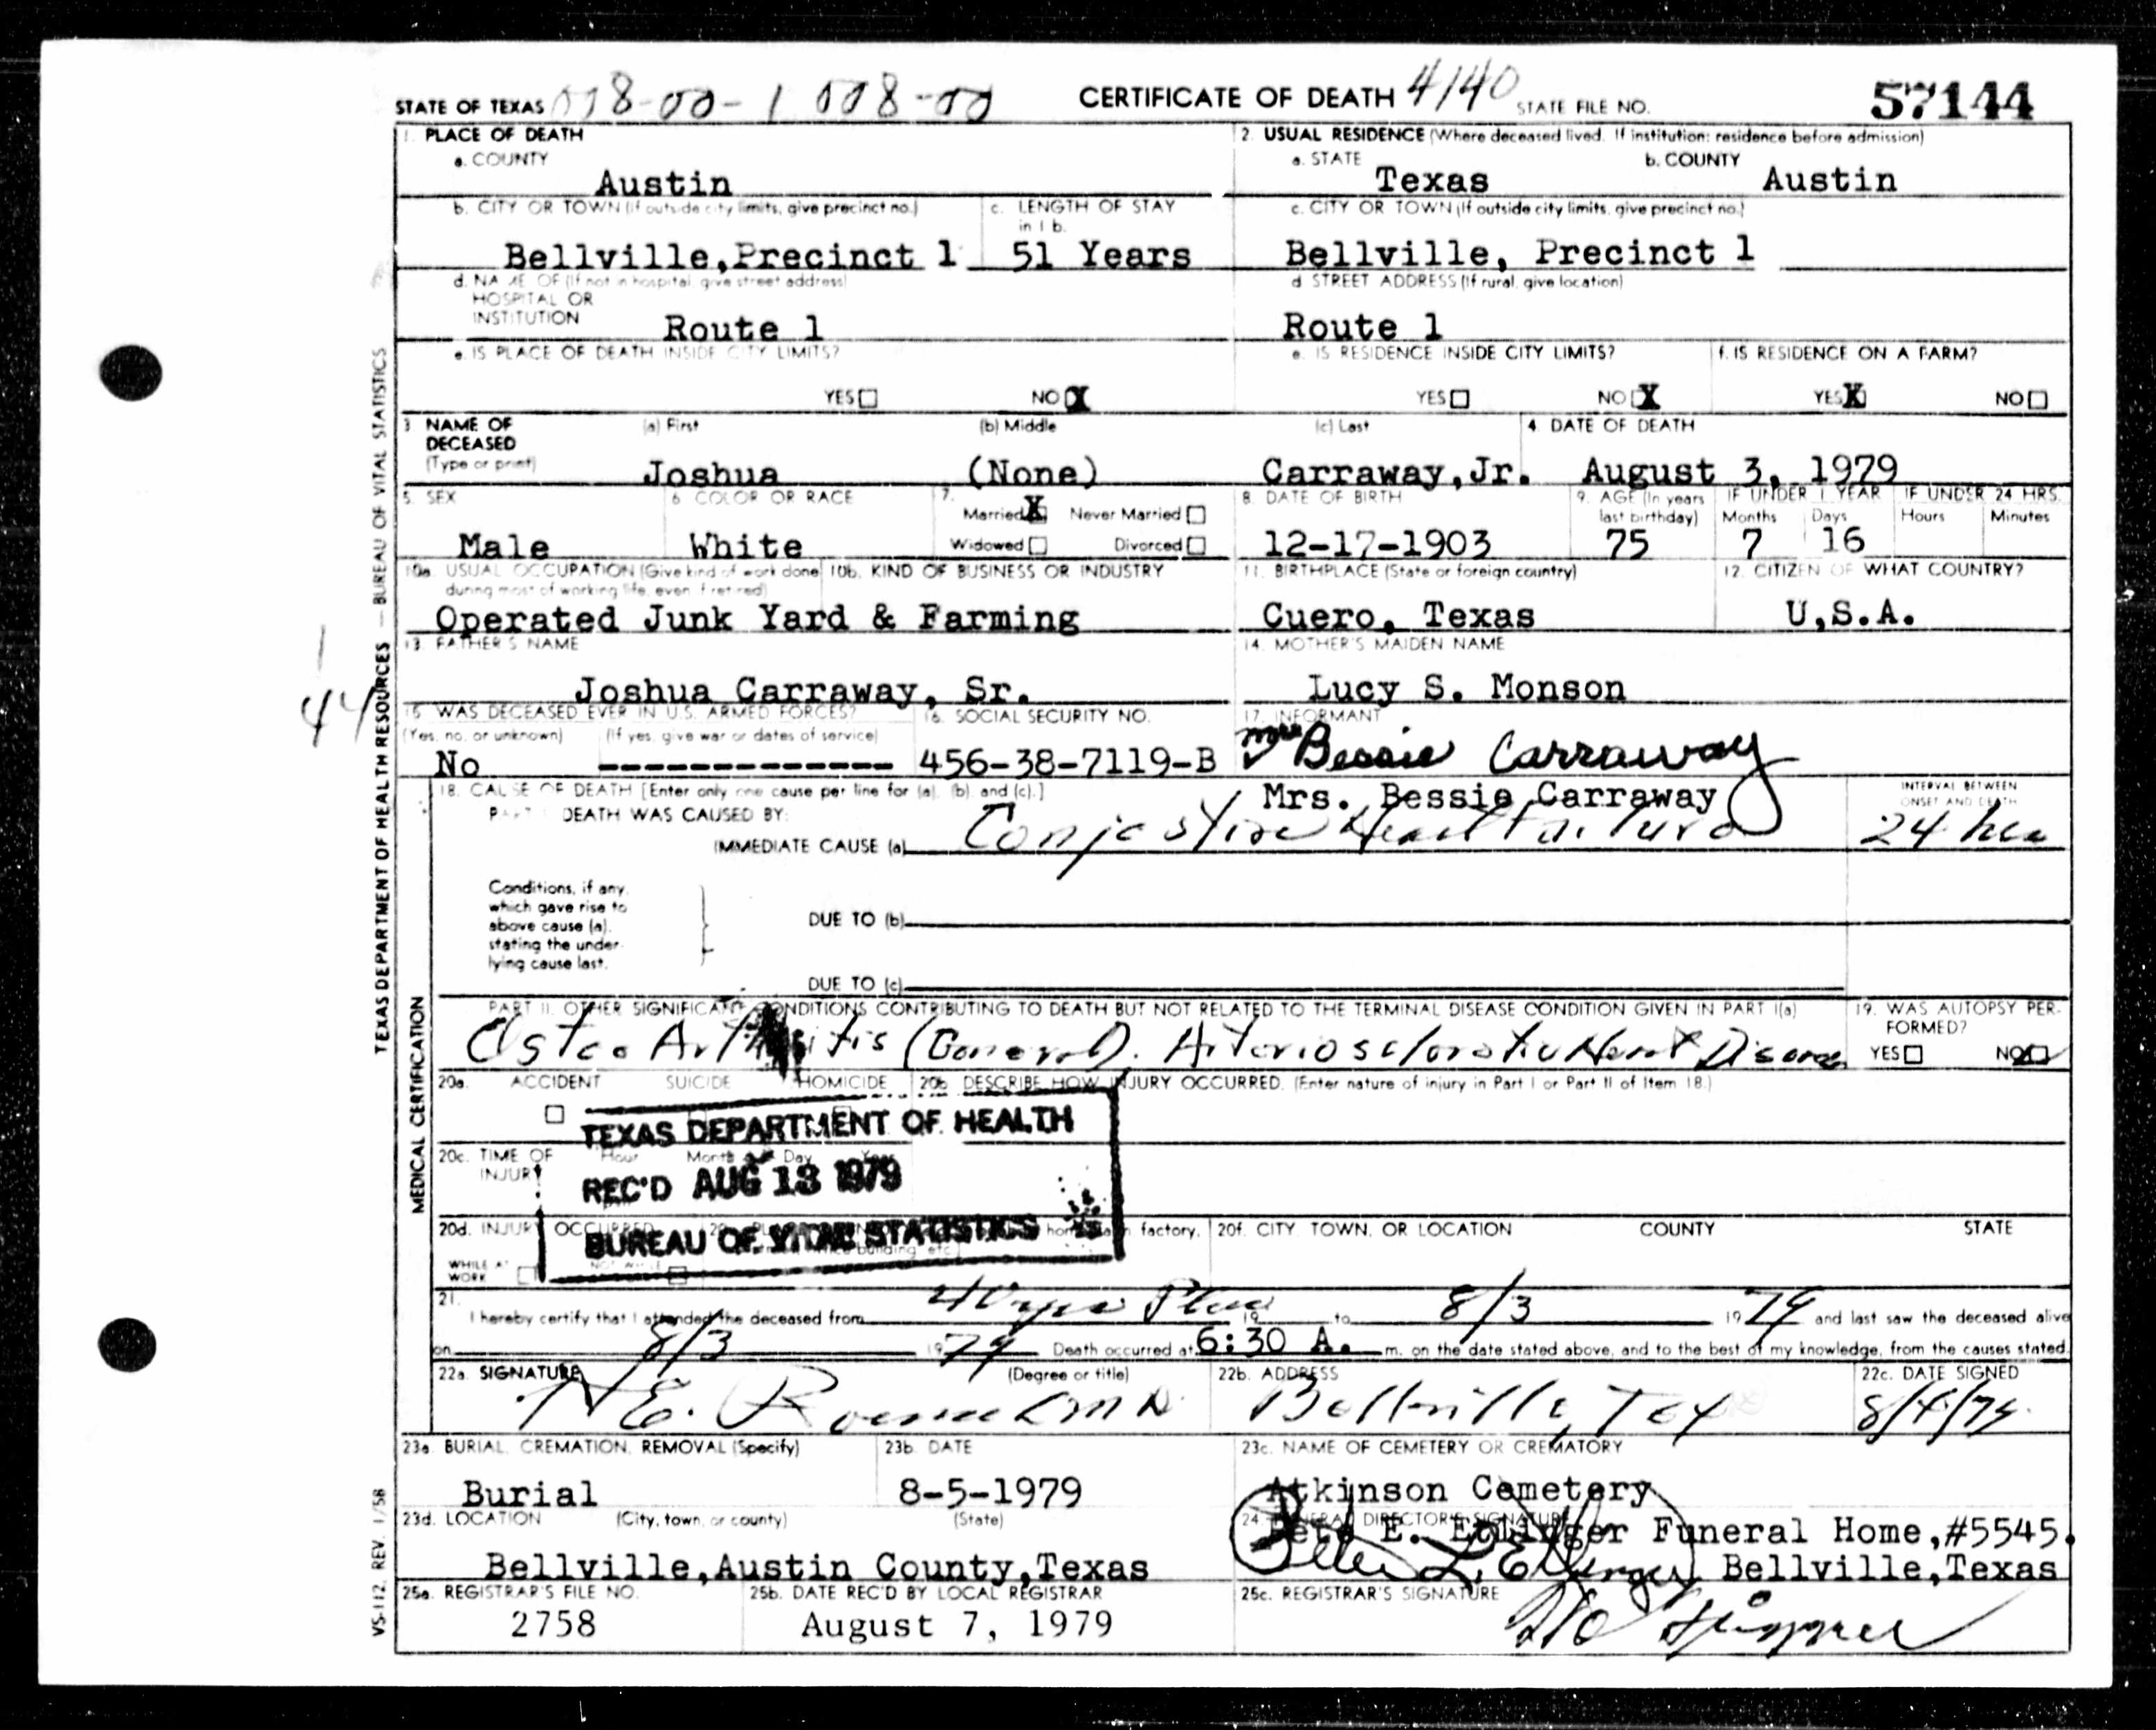 STATE OF TEXAS 008-00-1 008-00 CERTIFICATE OF DEATH 4140 STATE FILE NO. 57144
1. PLACE OF DEATH
a. COUNTY
Austin
2. USUAL RESIDENCE (Where deceased lived. If institution: residence before admission)
a. STATE b. COUNTY
Texas Austin
b. CITY OR TOWN (If outside city limits, give precinct no.) c. LENGTH OF STAY in 1 b.
Bellville,Precinct 1 51 Years
c. CITY OR TOWN (If outside city limits, give precinct no.)
Bellville, Precinct 1
d. NAME OF (If not in hospital, give street address)
HOSPITAL OR
INSTITUTION Route 1
d STREET ADDRESS (If rural, give location)
Route 1
e. IS PLACE OF DEATH INSIDE CITY LIMITS?
YES NO X
e. IS RESIDENCE INSIDE CITY LIMITS? f. IS RESIDENCE ON A FARM?
YES NO X YES X NO
3 NAME OF DECEASED (Type or print) (a) First (b) Middle (c) Last 4. DATE OF DEATH
Joshua (None) Carraway,Jr. August 3, 1979
5. SEX 6. COLOR OR RACE 7. Married X Never Married Widowed Divorced
Male White
8. DATE OF BIRTH 9. AGE (In years last birthday) IF UNDER 1 YEAR Months Days IF UNDER 24 HRS. Hours Minutes
12-17-1903 75 7 16
10a. USUAL OCCUPATION (Give kind of work done during most of working life, even if retired) 10b. KIND OF BUSINESS OR INDUSTRY
Operated Junk Yard & Farming
11. BIRTHPLACE (State or foreign country) 12. CITIZEN OF WHAT COUNTRY?
Cuero, Texas U.S.A.
13. FATHER'S NAME
Joshua Carraway, Sr.
14. MOTHER'S MAIDEN NAME
Lucy S. Monson
15 WAS DECEASED EVER IN U.S. ARMED FORCES? 16. SOCIAL SECURITY NO. 17. INFORMANT
(Yes, no, or unknown) (If yes, give war or dates of service)
No -------------- 456-38-7119-B
Mrs Bessie Carraway
Mrs. Bessie Carraway
18. CAUSE OF DEATH [Enter only one cause per line for (a), (b), and (c).]
INTERVAL BETWEEN ONSET AND DEATH
PART I DEATH WAS CAUSED BY:
IMMEDIATE CAUSE (a) Conjestive Heart Failure 24 hrs
Conditions, if any,
which gave rise to
above cause (a),
stating the under-
lying cause last.
DUE TO (b)
DUE TO (c)
PART II. OTHER SIGNIFICANT CONDITIONS CONTRIBUTING TO DEATH BUT NOT RELATED TO THE TERMINAL DISEASE CONDITION GIVEN IN PART I(a)
Osteo Arthritis (General). Arteriosclerotic Heart Disease
19. WAS AUTOPSY PERFORMED?
YES NO
20a. ACCIDENT SUICIDE HOMICIDE 20b DESCRIBE HOW INJURY OCCURRED. (Enter nature of injury in Part I or Part II of Item 18.)
TEXAS DEPARTMENT OF HEALTH
REC'D AUG 13 1979
BUREAU OF VITAL STATISTICS
20c. TIME OF INJURY Hour Month Day Year
20d. INJURY OCCURRED factory, 20f. CITY, TOWN, OR LOCATION COUNTY STATE
WHILE AT WORK NOT WHILE building etc
21.
I hereby certify that I attended the deceased from 40 yrs Plus 19 to 8/3 1979 and last saw the deceased alive
on 8/3 1979 Death occurred at 6:30 A. m. on the date stated above, and to the best of my knowledge, from the causes stated.
22a. SIGNATURE (Degree or title) 22b. ADDRESS 22c. DATE SIGNED
E. MD Bellville, Tex 8/4/79
23a. BURIAL, CREMATION, REMOVAL (Specify) 23b. DATE
Burial 8-5-1979
23c. NAME OF CEMETERY OR CREMATORY
Atkinson Cemetery
23d. LOCATION (City, town, or county) (State)
Bellville,Austin County,Texas
24. FUNERAL DIRECTOR'S SIGNATURE
Pete E. Etlinger Funeral Home,#5545.
Bellville,Texas
25a. REGISTRAR'S FILE NO. 25b. DATE REC'D BY LOCAL REGISTRAR 25c. REGISTRAR'S SIGNATURE
2758 August 7, 1979
TEXAS DEPARTMENT OF HEALTH RESOURCES — BUREAU OF VITAL STATISTICS
MEDICAL CERTIFICATION
VS-112, REV. 1/58
1
44